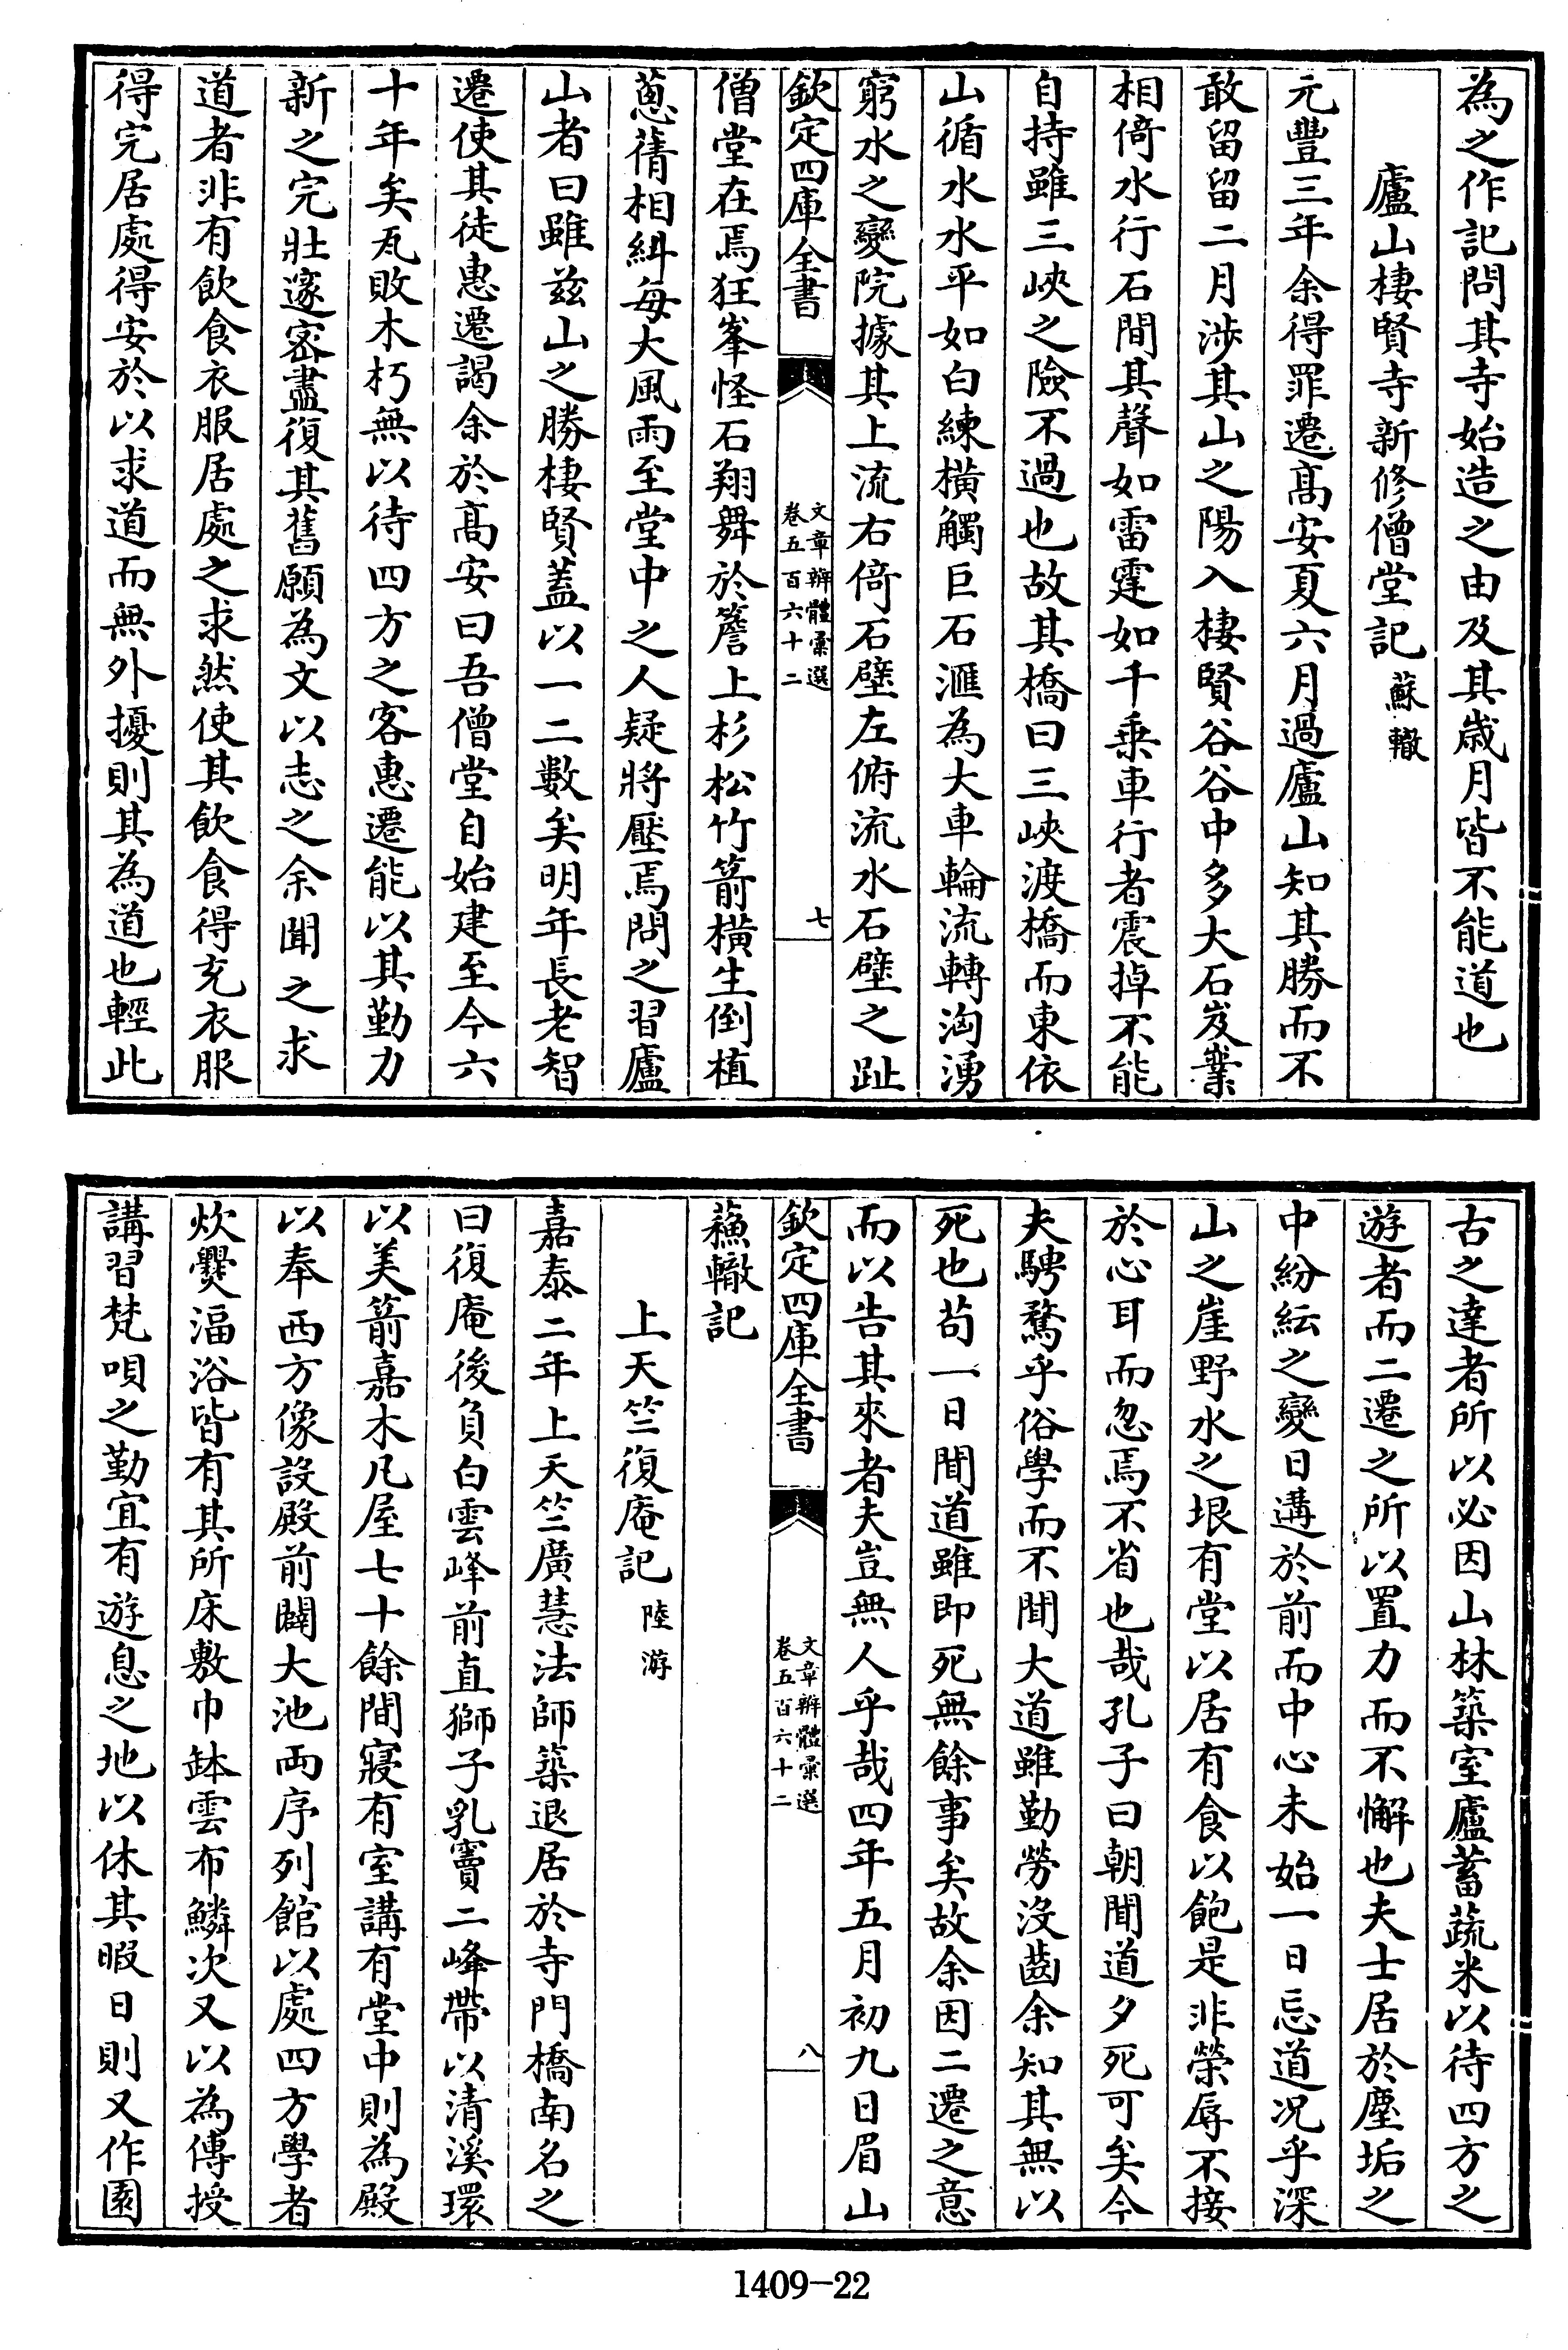 為之作記問其寺始造之由及其歲月皆不能道也
廬山棲賢寺新修僧堂記 蘇轍
元豐三年余得罪遷高安夏六月過廬山知其勝而不
敢留留二月涉其山之陽入棲賢谷谷中多大石岌業
相倚水行石間其聲如雷霆如千乘車行者震掉不能
自持雖三峽之險不過也故其橋曰三峽渡橋而東依
山循水水平如白練橫觸巨石滙為大車輪流轉洶湧
窮水之變院據其上流右倚石壁左俯流水石壁之趾
欽定四庫全書
文章辨體彙選
卷五百六十二
七
僧堂在焉狂峯怪石翔舞於簷上杉松竹箭橫生倒植
蔥蒨相糾每大風雨至堂中之人疑將壓焉問之習廬
山者曰雖兹山之勝棲賢蓋以一二數矣明年長老智
遷使其徒惠遷謁余於高安曰吾僧堂自始建至今六
十年矣瓦敗木朽無以待四方之客惠遷能以其勤力
新之完壯邃密盡復其舊願為文以志之余聞之求
道者非有飲食衣服居處之求然使其飲食得充衣服
得完居處得安於以求道而無外擾則其為道也輕此
古之達者所以必因山林築室廬蓄蔬米以待四方之
遊者而二遷之所以置力而不懈也夫士居於塵垢之
中紛紜之變日遘於前而中心未始一日忘道况乎深
山之崖野水之垠有堂以居有食以飽是非榮辱不接
於心耳而忽焉不省也哉孔子曰朝聞道夕死可矣今
夫騁騖乎俗學而不聞大道雖勤勞沒齒余知其無以
死也苟一日聞道雖即死無餘事矣故余因二遷之意
而以告其來者夫豈無人乎哉四年五月初九日眉山
欽定四庫全書
文章辨體彙選
卷五百六十二
八
蘓轍記
上天竺復庵記 陸游
嘉泰二年上天竺廣慧法師築退居於寺門橋南名之
曰復庵後負白雲峰前直獅子乳竇二峰帶以清溪環
以美箭嘉木凡屋七十餘間寢有室講有堂中則為殿
以奉西方像設殿前闢大池兩序列館以處四方學者
炊爨湢浴皆有其所床敷巾鉢雲布鱗次又以為傳授
講習梵唄之勤宜有遊息之地以休其暇日則又作園
1409-22